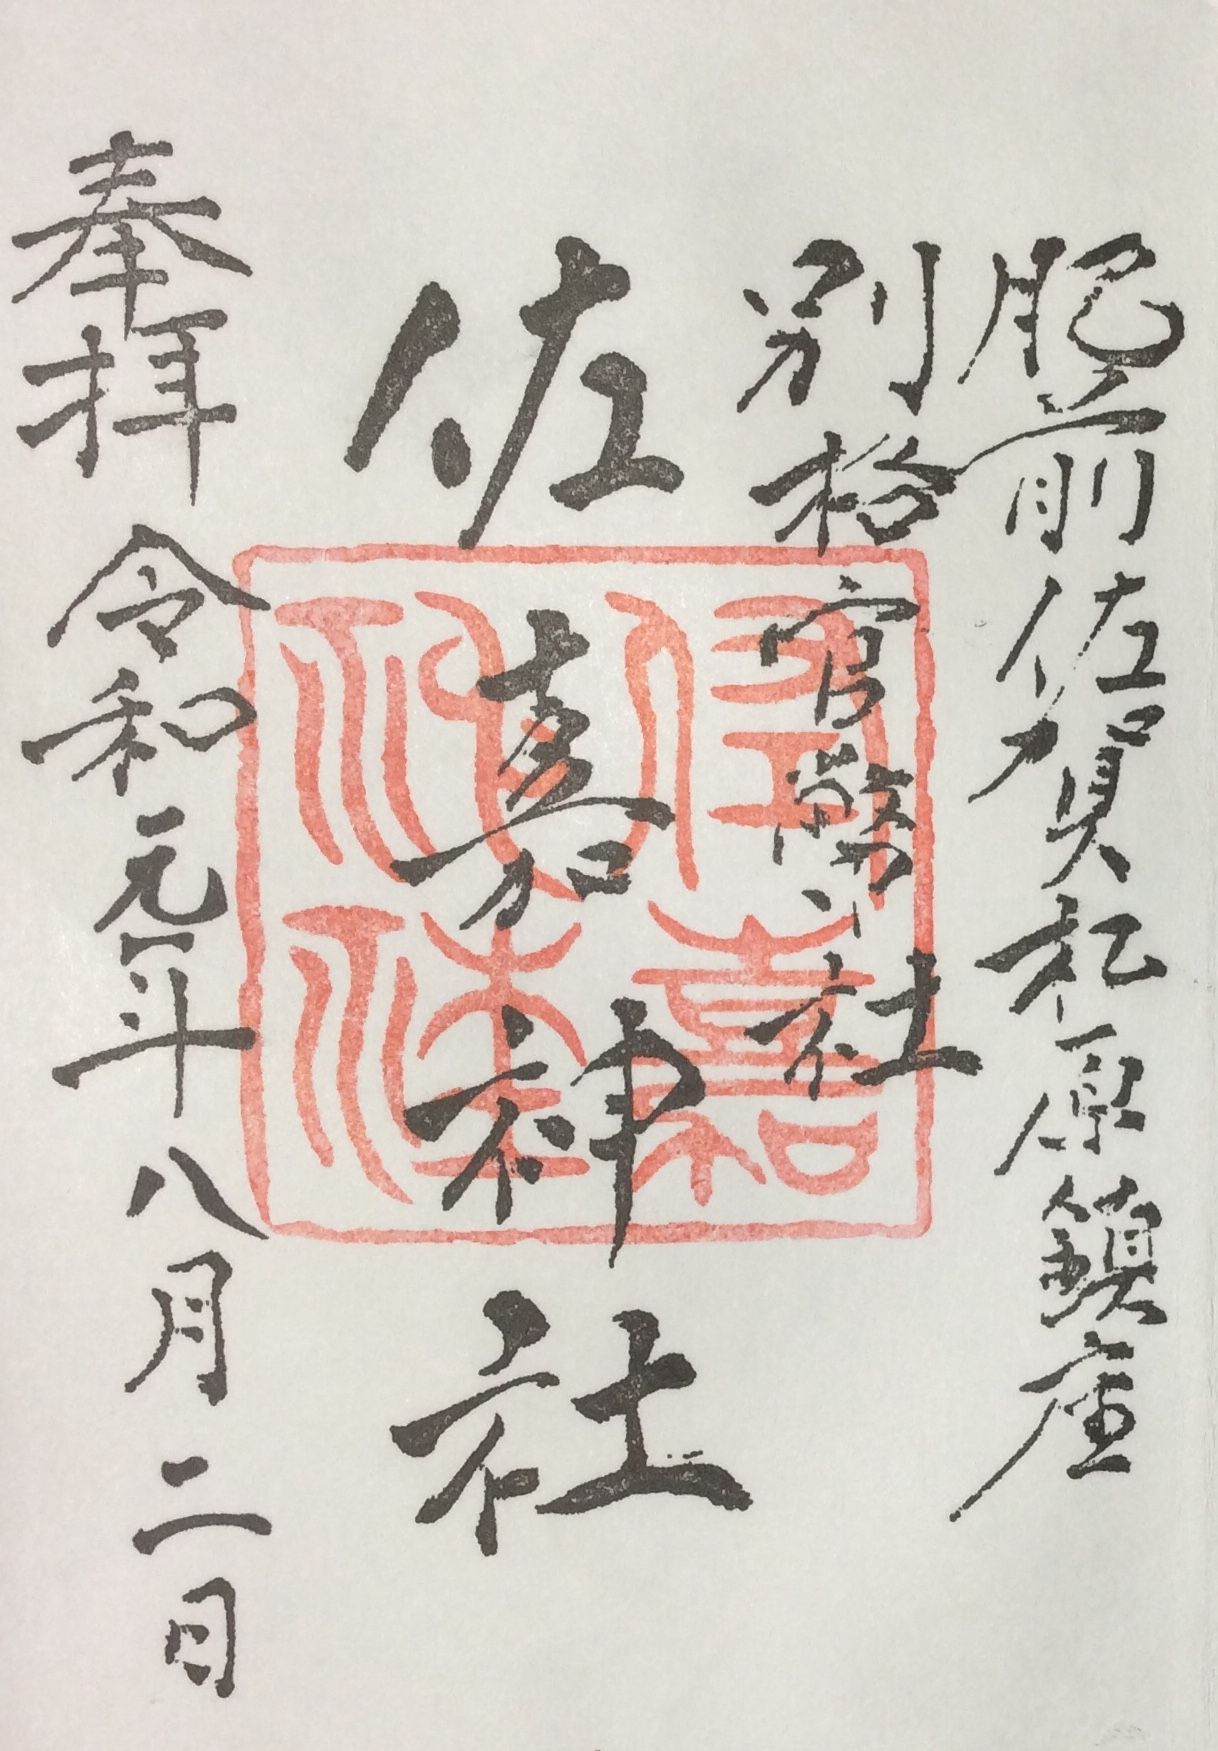 肥前佐賀松原鎮座
別格官幣社
佐嘉神社
奉拝 令和元年八月二日